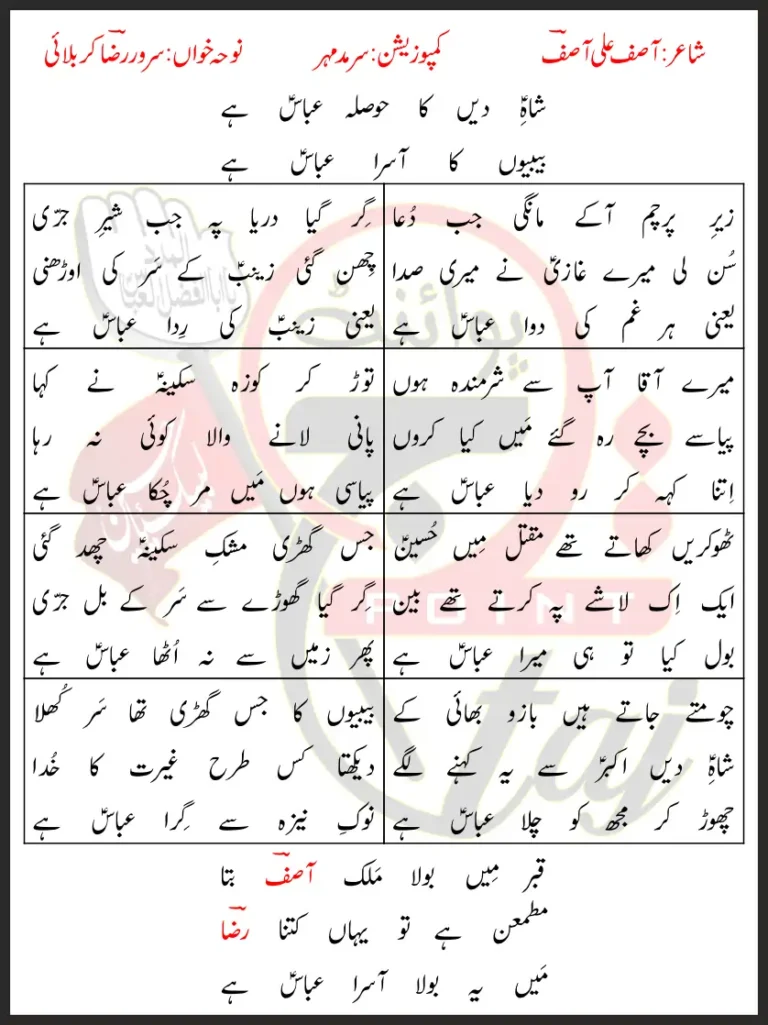 شاعر: آصف علی آصفؔ
کمپوزیشن: سرمد مہر
نوحہ خواں: سرور رضاؔ کربلائی
شاہِؑ دیں کا حوصلہ عباسؑ ہے
بیبیوں کا آسرا عباسؑ ہے
زیرِ پرچم آکے مانگی جب دُعا
سُن لی میرے غازیؑ نے میری صدا
یعنی ہر غم کی دوا عباسؑ ہے
گِر گیا دریا پہ جب شیرِ جرّی
چِھن گئی زینبؑ کے سَر کی اوڑھنی
یعنی زینبؑ کی رِدا عباسؑ ہے
میرے آقا آپ سے شرمندہ ہوں
پیاسے بچے رہ گئے مَیں کیا کروں
اِتنا کہہ کر رو دیا عباسؑ ہے
توڑ کر کوزہ سکینہؑ نے کہا
پانی لانے والا کوئی نہ رہا
پیاسی ہوں مَیں مر چُکا عباسؑ ہے
ٹھوکریں کھاتے تھے مقتل مِیں حُسینؑ
ایک اِک لاشے پہ کرتے تھے بین
بول کیا تو ہی میرا عباسؑ ہے
جس گھڑی مشکِ سکینہؑ چھد گئی
گِر گیا گھوڑے سے سَر کے بل جرّی
پھر زمیں سے نہ اُٹھا عباسؑ ہے
چومتے جاتے ہیں بازو بھائی کے
شاہِؑ دیں اکبرؑ سے یہ کہنے لگے
چھوڑ کر مجھ کو چلا عباسؑ ہے
بیبیوں کا جس گھڑی تھا سَر کُھلا
دیکھتا کس طرح غیرت کا خُدا
نوکِ نیزہ سے گِرا عباسؑ ہے
قبر مِیں بولا مَلک آصفؔ بتا
مطمعن ہے تو یہاں کتنا رضاؔ
مَیں یہ بولا آسرا عباسؑ ہے
پوائنٹ
POINT
taj